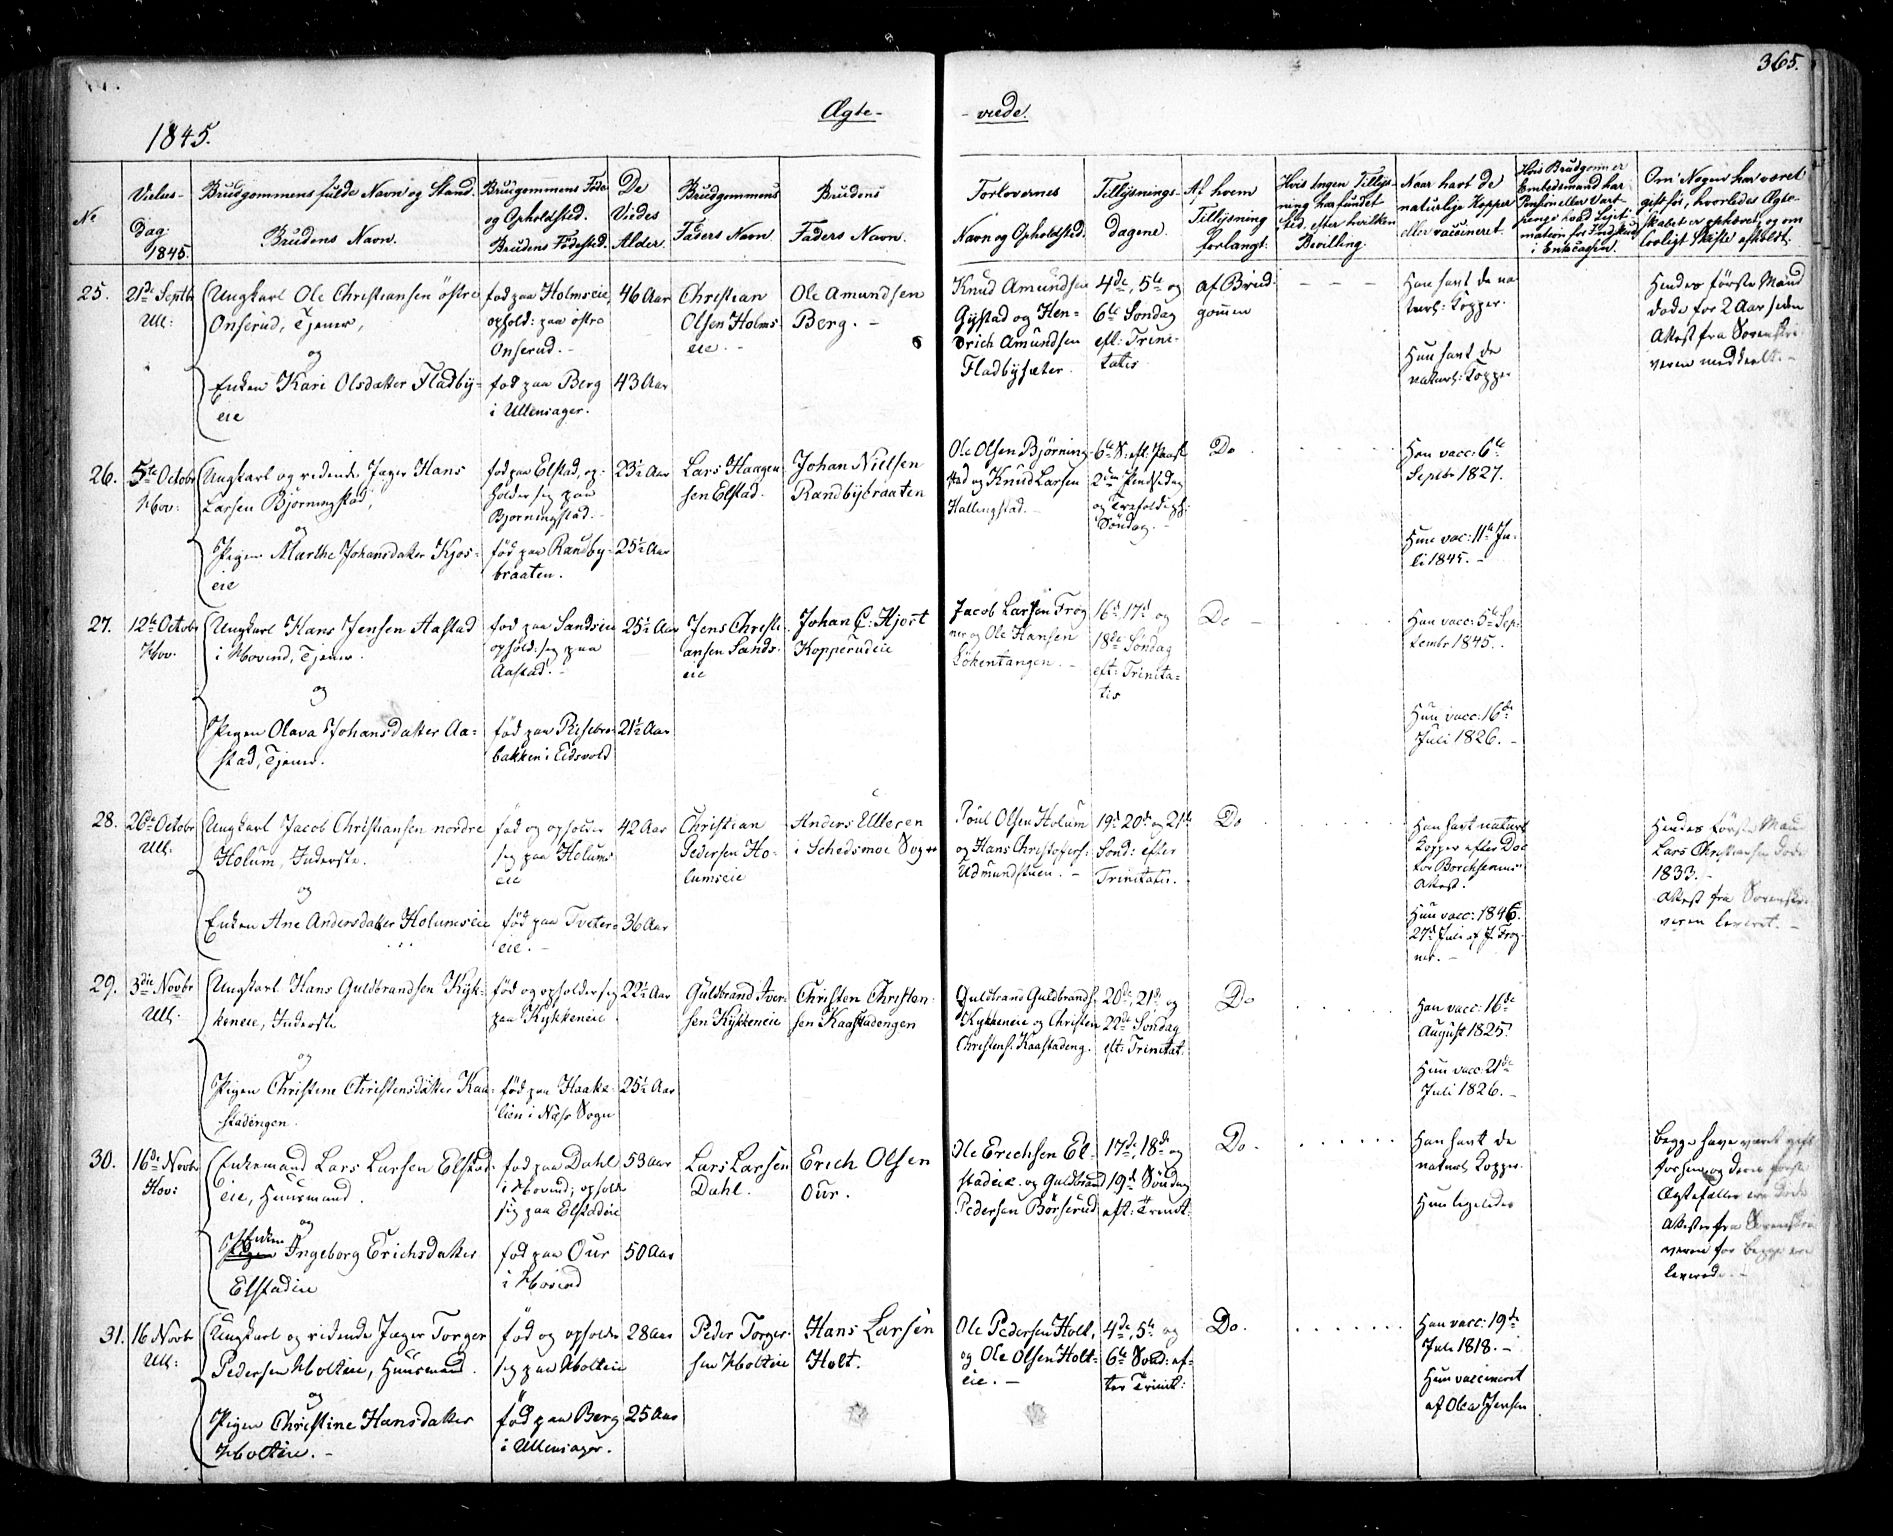 365.
Ægte-
-viede.
1845.
No
Vielses-
Dag:
1845.
Brudgommens fulde Navn og Stand.
Brudens Navn.
Brudgommens Føde
og Opholdsted.
Brudens Fødested.
De
Viedes
Alder.
Brudgommens
Faders Navn.
Brudens
Faders Navn.
Forlovernes
Navn og Opholdsted.
Tillysnings-
dagene.
Af hvem
Tillysning
forlangt.
Hvis Ingen Tillys-
ning har fundet
Sted, efter hvilken
Bevilling.
Naar havt de
naturlige Kopper
eller vaccineret.
Hvis Brudgommen er
Embedsmand har
Pension eller Vart
penge hvad Legit
mation for Indskud
i Enkecassen.
Om Nogen har været
gift før, hvorledes Ægte-
skabet er ophævet, og om
lovligt Skifte afholdt.
25.
21de Septbr
Ull:
Ungkarl Ole Christiansen østre
Onserud, Tjener,
og
Enken Kari Olsdatter Fladby-
eie
fød paa Holmseie,
ophold: paa østre
Onserud. -
fød paa Berg
i Ullensager.
46 Aar
43 Aar
Christian
Olsen Holms
eie. -
Ole Amundsen
Berg. -
Knud Amundsen
Gystad og Hen-
drich Amundsen
Fladbysæter.
4de, 5te og
6te Søndag
eft: Trini-
tatis
af Brud-
gommen
- - -
Han havt de na
turl: Kopper.
Hun havt de
naturl: Kopper
Hendes første Mand
døde for 2 Aar siden
Attest fra Sorenskri
veren meddeelt. -
26.
5te Octobr
Hov:
Ungkarl og ridende Jæger Hans
Larsen Bjørningstad,
og
Pigen Marthe Johansdatter Kjos-
eie
fød paa Elstad, op-
holder sig paa
Bjørningstad. -
fød paa Randby-
braaten.
23½ Aar
25½ Aar
Lars Haagen
sen Elstad.
Johan Nielsen
Randbybraaten
Ole Olsen Bjørning
stad og Knud Larsen
Hallingstad. -
6te S: eft: Paask
2den Pindsedag
og Trefoldigh:
Søndag. -
Do
Han vacc: 6te
Septbr 1827.
Hun vac: 11te Ju-
li 1845. -
27.
12te Octobr
Hov.
Ungkarl Hans Jensen Aastad
i Hovind, Tjener.
og
Pigen Olava Johansdatter Aa-
stad, Tjener.
fød paa Sandseie
ophold: sig paa
Aastad. -
fød paa Risebro-
bakken i Eidsvold
25½ Aar
21½ Aar
Jens Christi-
ansen Sands-
eie
Johan C: Hjort
Kopperudeie
Jacob Larsen Frog
ner og Ole Hansen
Løkentangen. -
16d 17d og
18de Søndag
eft: Trinita-
tis
Do -
Han vacc: 5te Sep-
tembr 1845.
Hun vacc: 16de
Juli 1826. -
28.
26de Octobr
Ull:
Ungkarl Jacob Christiansen nordre
Holum, Inderste.
og
Enken Ane Andersdatter Holumseie
fød og opholder
sig paa Holums
eie
fød paa Tveter-
eie. -
42 Aar
36 Aar
Christian
Pedersen Ho-
lumseie
Anders Ulleren
i Schedsmoe Sogn
Poul Olsen Holum
og Hans Christofers:
Udmundstuen. -
19d 20de og 21de
Sond: efter
Trinitatis.
Do
Han havt naturl
Kopper efter Doc
tor Borchsenius
Attest.
Hun vacc: 1845.
27d Juli af J. Frog-
ner. -
Hendes første Man
Lars Christiansen døde
1833. -
Attest fra Sorenskri
veren leveret. -
29.
3die Novbr
Ull.
Ungkarl Hans Guldbrandsen Kyk-
keneie, Inderste
og
Pigen Christine Christensdatter Kaa-
stadengen.
fød og opholder sig
paa Kykkeneie
fød paa Haake-
lien i Næs Sogn
22½ Aar
25½ Aar
Guldbrand Iver-
sen Kykkeneie
Christen Christen-
sen Kaastadengen
Guldbrand Guldbrands:
Kykkeneie og Christen
Christens: Kaastadeng.
20de, 21de og
22de Søndag
eft: Trinitat:
Do
Han vacc: 16de
August 1825.
Hun vacc: 21de
Juli 1826. -
30.
16de Novbr
Hov:
Enkemand Lars Larsen Elstad-
eie, Huusmand.
og
Enken
Pigen Ingeborg Erichsdatter
Elstadeie
fød paa Dahl
i Hovind; ophold
sig paa Elstadeie
fød paa Our
i Hovind
53 Aar
50 Aar
Lars Larsen
Dahl.
Erich Olsen
Our.
Ole Erichsen El-
stadeie og Guldbrand
Pedersen Børserud
17de, 18de og
19d Søndag
eft: Trinit:
Do.
Han havt de
naturl: Kopper.
Hun ligeledes
Begge have været gift
før hen og deres første
Ægtefæller ere døde
Attester fra Sorenskri
veren for begge ere
leverede. -
31.
16 Novbr
Ull:
Ungkarl og ridende Jæger Torger
Pedersen Holteie, Huusmand.
og
Pigen Christine Hansdatter
Holteie. -
fød og opholder
sig paa Holteie
fød paa Berg
i Ullensager.
28 Aar
25 Aar
Peder Torger-
sen Holteie
Hans Larsen
Holt.
Ole Pedersen Holt,
og Ole Olsen Holt-
eie. -
4de, 5te og
6te Sønd: ef-
ter Trinit:
Do.
Han vacc: 19de
Juli 1818. -
Hun vaccineret
af Olea Jensen